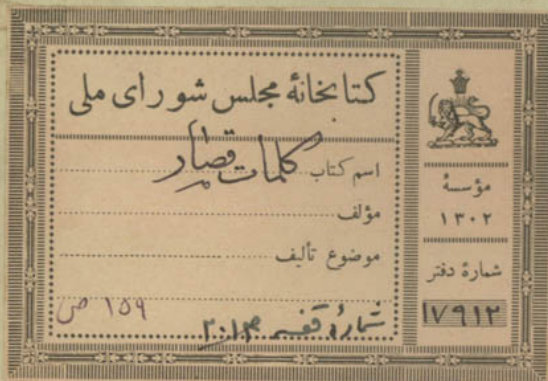 کتابخانهٔ مجلس شورای ملی
اسم کتاب کلمات قصار
مؤلف
موضوع تألیف
شمارهٔ قفسه
۱۵۹ ص
مؤسسهٔ
۱۳۰۲
شمارهٔ دفتر
۱۷۹۱۲